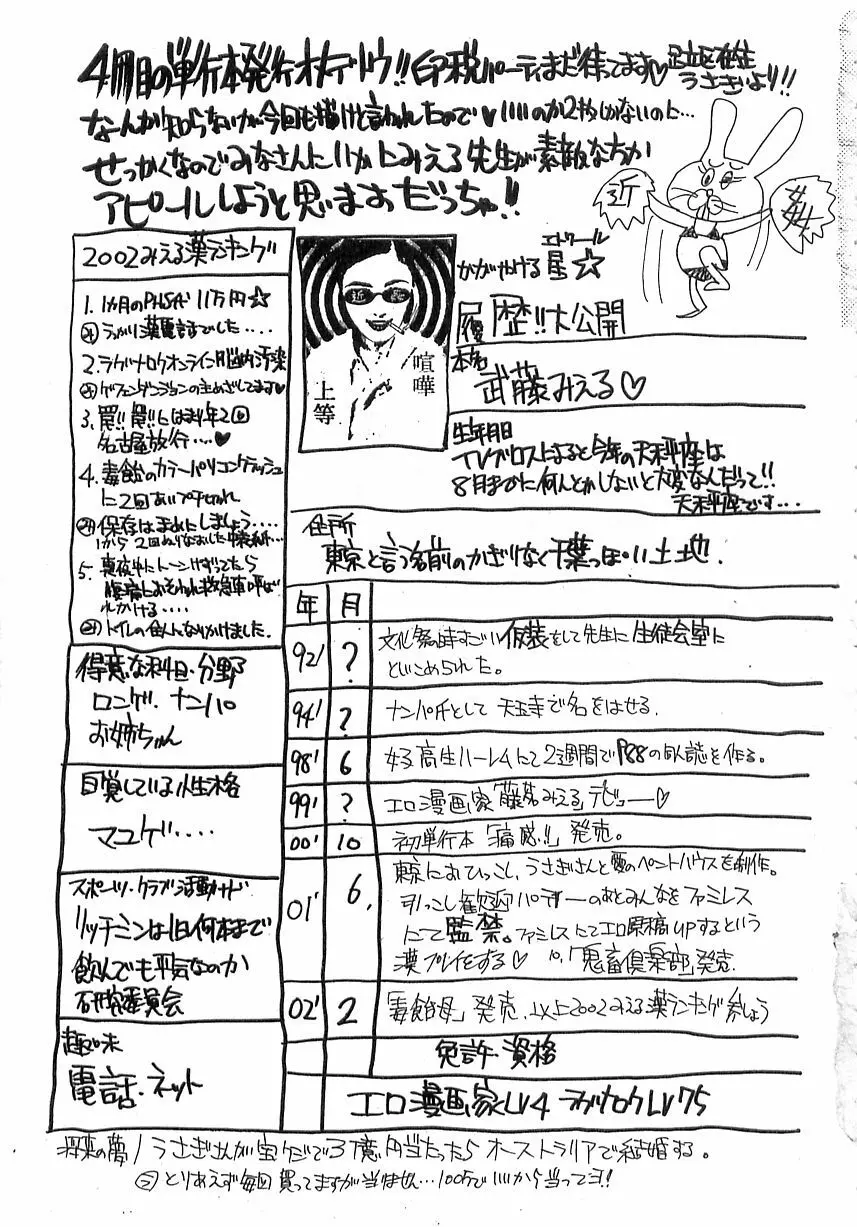 4冊目の単行本発行オメデトウ!! 印税パーティまだ待ってます♡ 足立区在住
うさぎより!!
なーんか知らないが今回も描けと言われたので♥いいのか2枚しかないのに…
せっかくなのでみなさんにいかにみえる先生が素敵な方か
アピールしようと思いますっだっちゃ!!
近
2002みえる薬ランキング
1. 1カ月のPHS代 11万円☆
2. ラグナロクオンライン脳内汚染
ゲフェンダンジョンの主めざしてます♥
3. 罠!! 罠!!にはまり年2回
名古屋旅行…♥
4. 毒飴のカラーバリコンクラッシュ
保存はまめにしましょう….
5. 真夜中にトーンけずってたら
腹痛におそわれ救急車呼ば
れかける….
トイレの住人になりかけました.
得意な科目・分野
ロンゲ. ナンパ
お姉ちゃん
自覚している性格
マユゲ….
スポーツ・クラブ活動など
リッチミンは1日何本まで
飲んでも平気なのか
研究委員会
趣味
電話・ネット
喧嘩
上等
かがやける星☆
エトワール
履歴!!大公開
本名
武藤みえる♡
生年月日
TVブロスによると今年の天秤座は
8月までに何んとかしないと大変なんだって!!
天秤座です…
住所
東京と言う名前のかぎりなく千葉っぽい土地.
年 月
92' ? 文化祭の時すごい仮装をして先生に生徒会室に
といこめられた。
94' ? ナンパ氏として天王寺で名をはせる.
98' 6 女子高生ハーレムにて2週間でP88の同人誌を作る。
99' ? エロ漫画家「藤みえる」デビュー♡
00' 10 初単行本「痛感!!」発売。
01' 6. 東京におひっこし, うさぎさんと愛のペントハウスを制作。
引っこし歓迎パーティーのあとみんなをファミレス
にて監禁。ファミレスにてエロ原稿UPするという
漢プレイをする♡ 10,「鬼畜倶楽部」発売.
02' 2 「毒飴母」発売. 以上2002みえる薬ランキング参しょう
免許・資格
エロ漫画家LV4 ラグナロクLV75
将来の夢/うさぎさんが宝クジで3億円当たったらオーストラリアで結婚する。
とりあえず毎回買ってますが当りません…100万でいいから当ってヨ!!